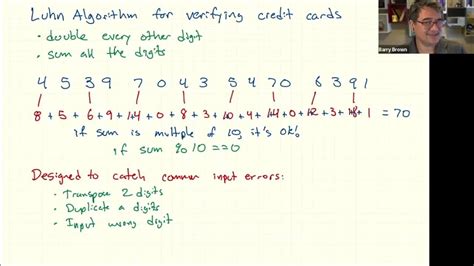 Luhn Algorithm for verifying credit cards
• double every other digit
• sum all the digits
Barry Brown
4 5 3 9 7 0 4 3 5 4 7 0 6 3 9 1
8+5+6+9+14+0+8+3+10+4+14+0+12+3+18+1 = 70
if sum is multiple of 10, it's ok!
if sum % 10 == 0
Designed to catch common input errors:
• Transpose 2 digits
• Duplicate a digits
• Input wrong digit